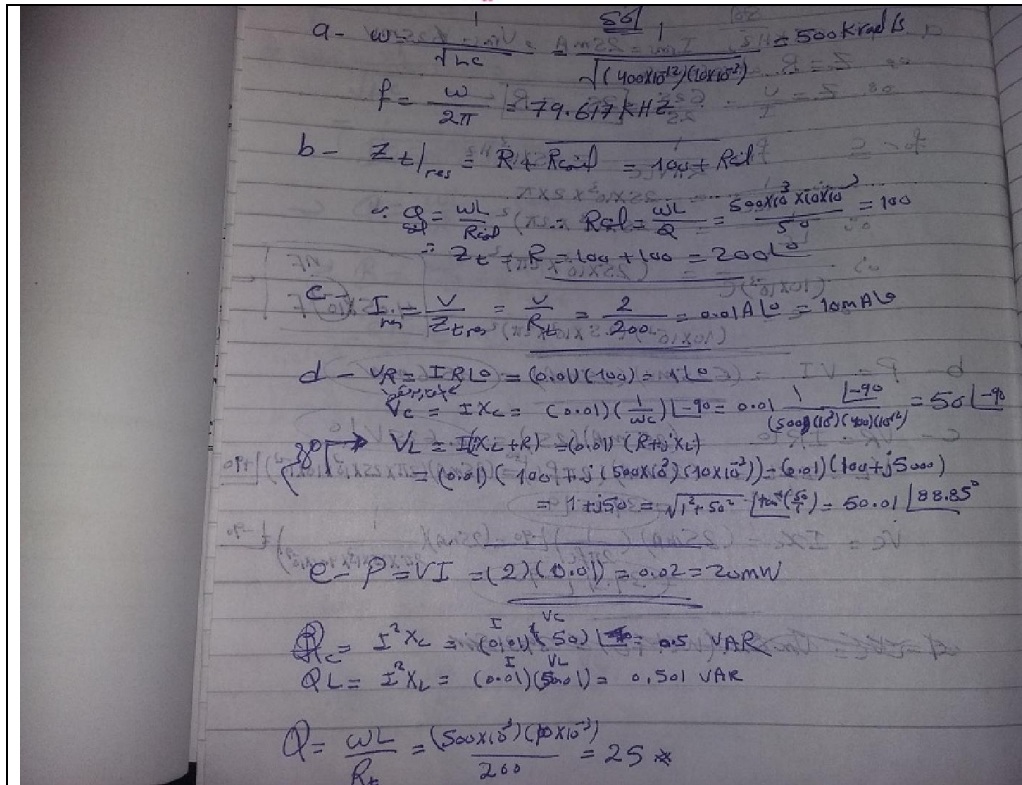 Sol
a- ω = 1/√LC = 1/√((400x10^-12)(10x10^-3)) = 500 k rad/s
f = ω/2π = 79.617 KHZ
b- Zt|res = R + Rcoil = 100 + Rcoil
∴ Qcoil = ωL/Rcoil ∴ Rcoil = ωL/Q = 500x10^3 x10x10^-3/50 = 100
∴ Zt = R = 100 + 100 = 200∠0
c- Ires = V/Ztres = V/Rt = 2/200 = 0.01A∠0 = 10mA∠0
d- VR = IR∠0 = (0.01)(100) = 1∠0
Vc = IXc = (0.01)(1/ωc)∠-90 = 0.01 1∠-90/(500x10^3)(400)(10^-12) = 50∠-90
VL = I(XL+R) = (0.01)(R+jXL)
= (0.01)(100+j(500x10^3)(10x10^-3)) = (0.01)(100+j5000)
= 1+j50 = √1²+50² ∠tan^-1(50/1) = 50.01∠88.85°
e- P = VI = (2)(0.01) = 0.02 = 20mW
I Vc
Qc = I²Xc = (0.01)(50) = 0.5 VAR
I VL
QL = I²XL = (0.01)(50.01) = 0.501 VAR
Q = ωL/Rt = (500x10^3)(10x10^-3)/200 = 25